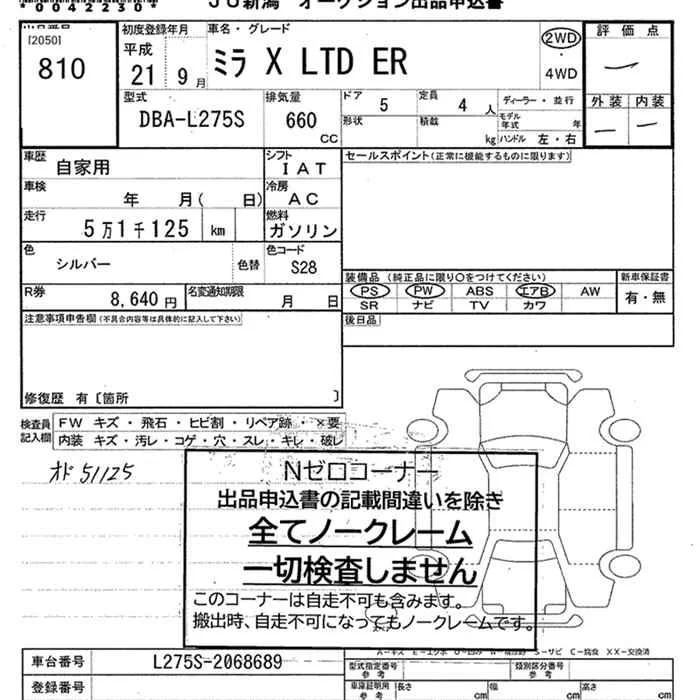 *00422300*
JU新潟 オークション出品申込書
出品番号
[2050]
810
初度登録年月
平成
21年 9月
車名・グレード
ミラ X LTD ER
2WD
・
4WD
評価点
外装 内装
型式
DBA-L275S
排気量
660
CC
ドア 5
定員 4 人
形状
積載 kg
ディーラー・並行
モデル年式 年
ハンドル 左・右
車歴
自家用
シフト
IAT
セールスポイント(正常に機能するものに限ります)
車検
年 月( 日)
冷房
AC
走行
5万1千125 km
燃料
ガソリン
色
シルバー
色替
色コード
S28
R券
8,640円
名変通知期限
月 日
装備品(純正品に限り○をつけてください)
新車保証書
PS PW ABS エアB AW
SR ナビ TV カワ
有・無
注意事項申告欄(不具合内容等は具体的に記入して下さい)
後日品
修復歴 有〔箇所 〕
検査員記入欄
FW キズ・飛石・ヒビ割・リペア跡・×要
内装 キズ・汚レ・コゲ・穴・スレ・キレ・破レ
オド 51125
Nゼロコーナー
出品申込書の記載間違いを除き
全てノークレーム
一切検査しません
このコーナーは自走不可も含みます。
搬出時、自走不可になってもノークレームです。
S-サビ C-腐食 XX-交換済
車台番号
L275S-2068689
登録番号
型式指定番号
参考
類別区分番号
参考
車庫証明用
参考
長さ cm
幅 cm
高さ cm